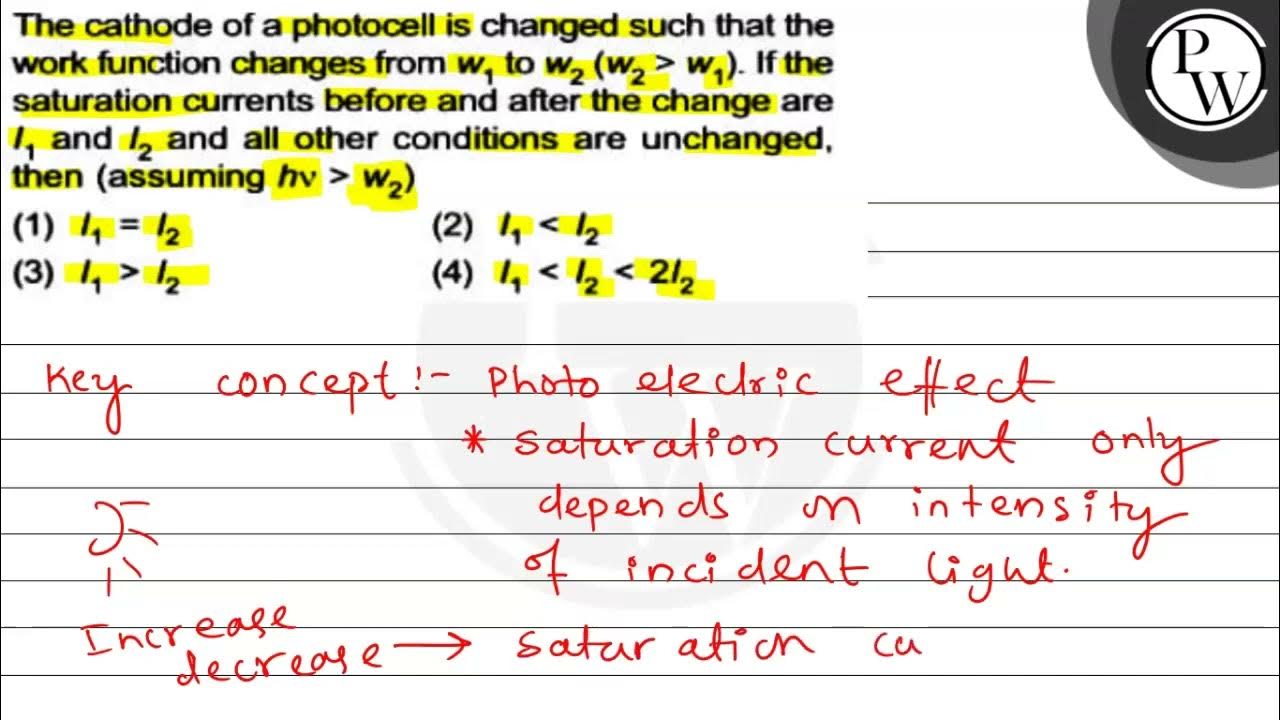 The cathode of a photocell is changed such that the
work function changes from w₁ to w₂ (w₂ > w₁). If the
saturation currents before and after the change are
I₁ and I₂ and all other conditions are unchanged,
then (assuming hν > w₂)
(1) I₁ = I₂ (2) I₁ < I₂
(3) I₁ > I₂ (4) I₁ < I₂ < 2I₂
P
W
Key concept :- Photo electric effect
* saturation current only
depends on intensity
of incident light.
Increase
decrease → saturation cu